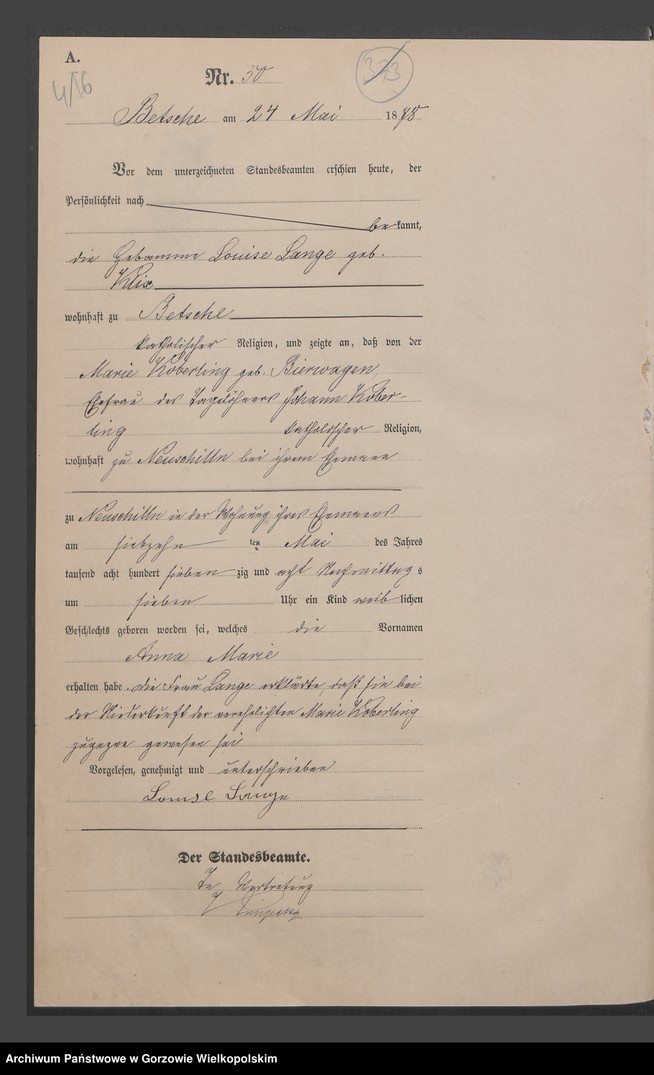 A.
Nr. 50
373
4/56
Betsche am 24 Mai 1878
Vor dem unterzeichneten Standesbeamten erschien heute, der
Persönlichkeit nach
bekannt,
die Hebamme Louise Lange geb.
Klix
wohnhaft zu Betsche
katholischer Religion, und zeigte an, daß von der
Marie Koberling geb. Bierwagen
Ehefrau des Tagelöhners Johann Kober-
ling katholischer Religion,
wohnhaft zu Neuschilln bei ihrem Ehemann
zu Neuschilln in der Wohnung ihres Ehemanns
am siebzehn ten Mai des Jahres
tausend acht hundert sieben zig und acht Nachmittags
um sieben Uhr ein Kind weiblichen
Geschlechts geboren worden sei, welches die Vornamen
Anna Marie
erhalten habe. Die Frau Lange erklärte, daß sie bei
der Niederkunft der verehelichten Marie Koberling
zugegen gewesen sei
Vorgelesen, genehmigt und unterschrieben
Louise Lange
Der Standesbeamte.
In Vertretung
Archiwum Państwowe w Gorzowie Wielkopolskim